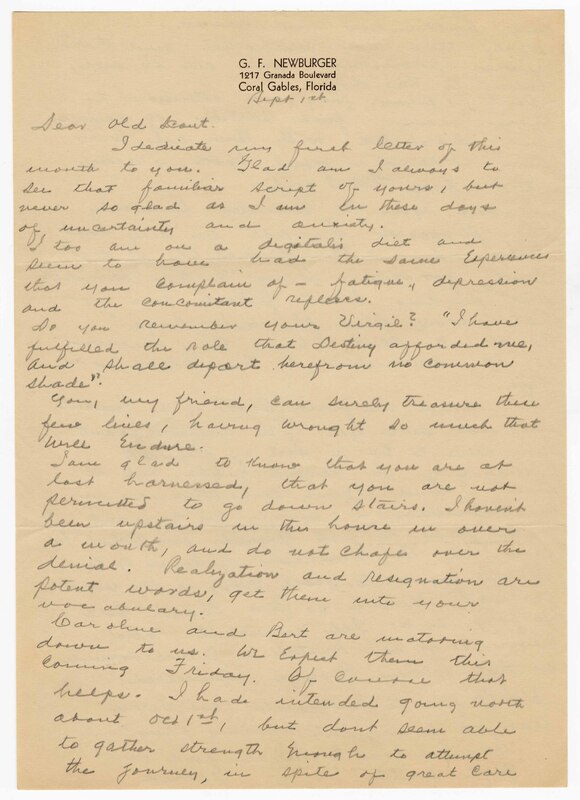 G. F. NEWBURGER
1217 Granada Boulevard
Coral Gables, Florida
Sept 1st
Dear Old Scout.
I dedicate my first letter of this
month to you. Glad am I always to
see that familiar script of yours, but
never so glad as I am in these days
of uncertainty and anxiety.
I too am on a digitalis diet and
seem to have had the same experiences
that you complain of - fatigue, depression
and the concomitant reflexes.
Do you remember your Virgil? "I have
fulfilled the role that Destiny afforded me,
and shall depart herefrom no common
shade".
You, my friend, can surely treasure these
few lines, having wrought so much that
will endure.
I am glad to know that you are at
last harnessed, that you are not
permitted to go down stairs. I havent
been upstairs in this house in over
a month, and do not chafe over the
denial. Realization and resignation are
potent words, get them into your
vocabulary.
Caroline and Bert are motoring
down to us. We expect them this
coming Friday. Of course that
helps. I had intended going north
about Oct 1st, but dont seem able
to gather strength enough to attempt
the journey, in spite of great care